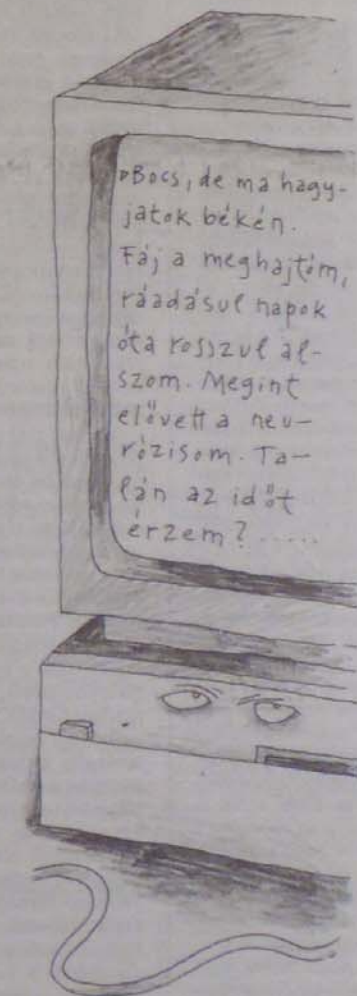 ▷Bocs, de ma hagy-
jatok békén.
Fáj a meghajtóm,
ráadásul napok
óta rosszul al-
szom. Megint
elővett a neu-
rózisom. Ta-
lán az időt
érzem?.....